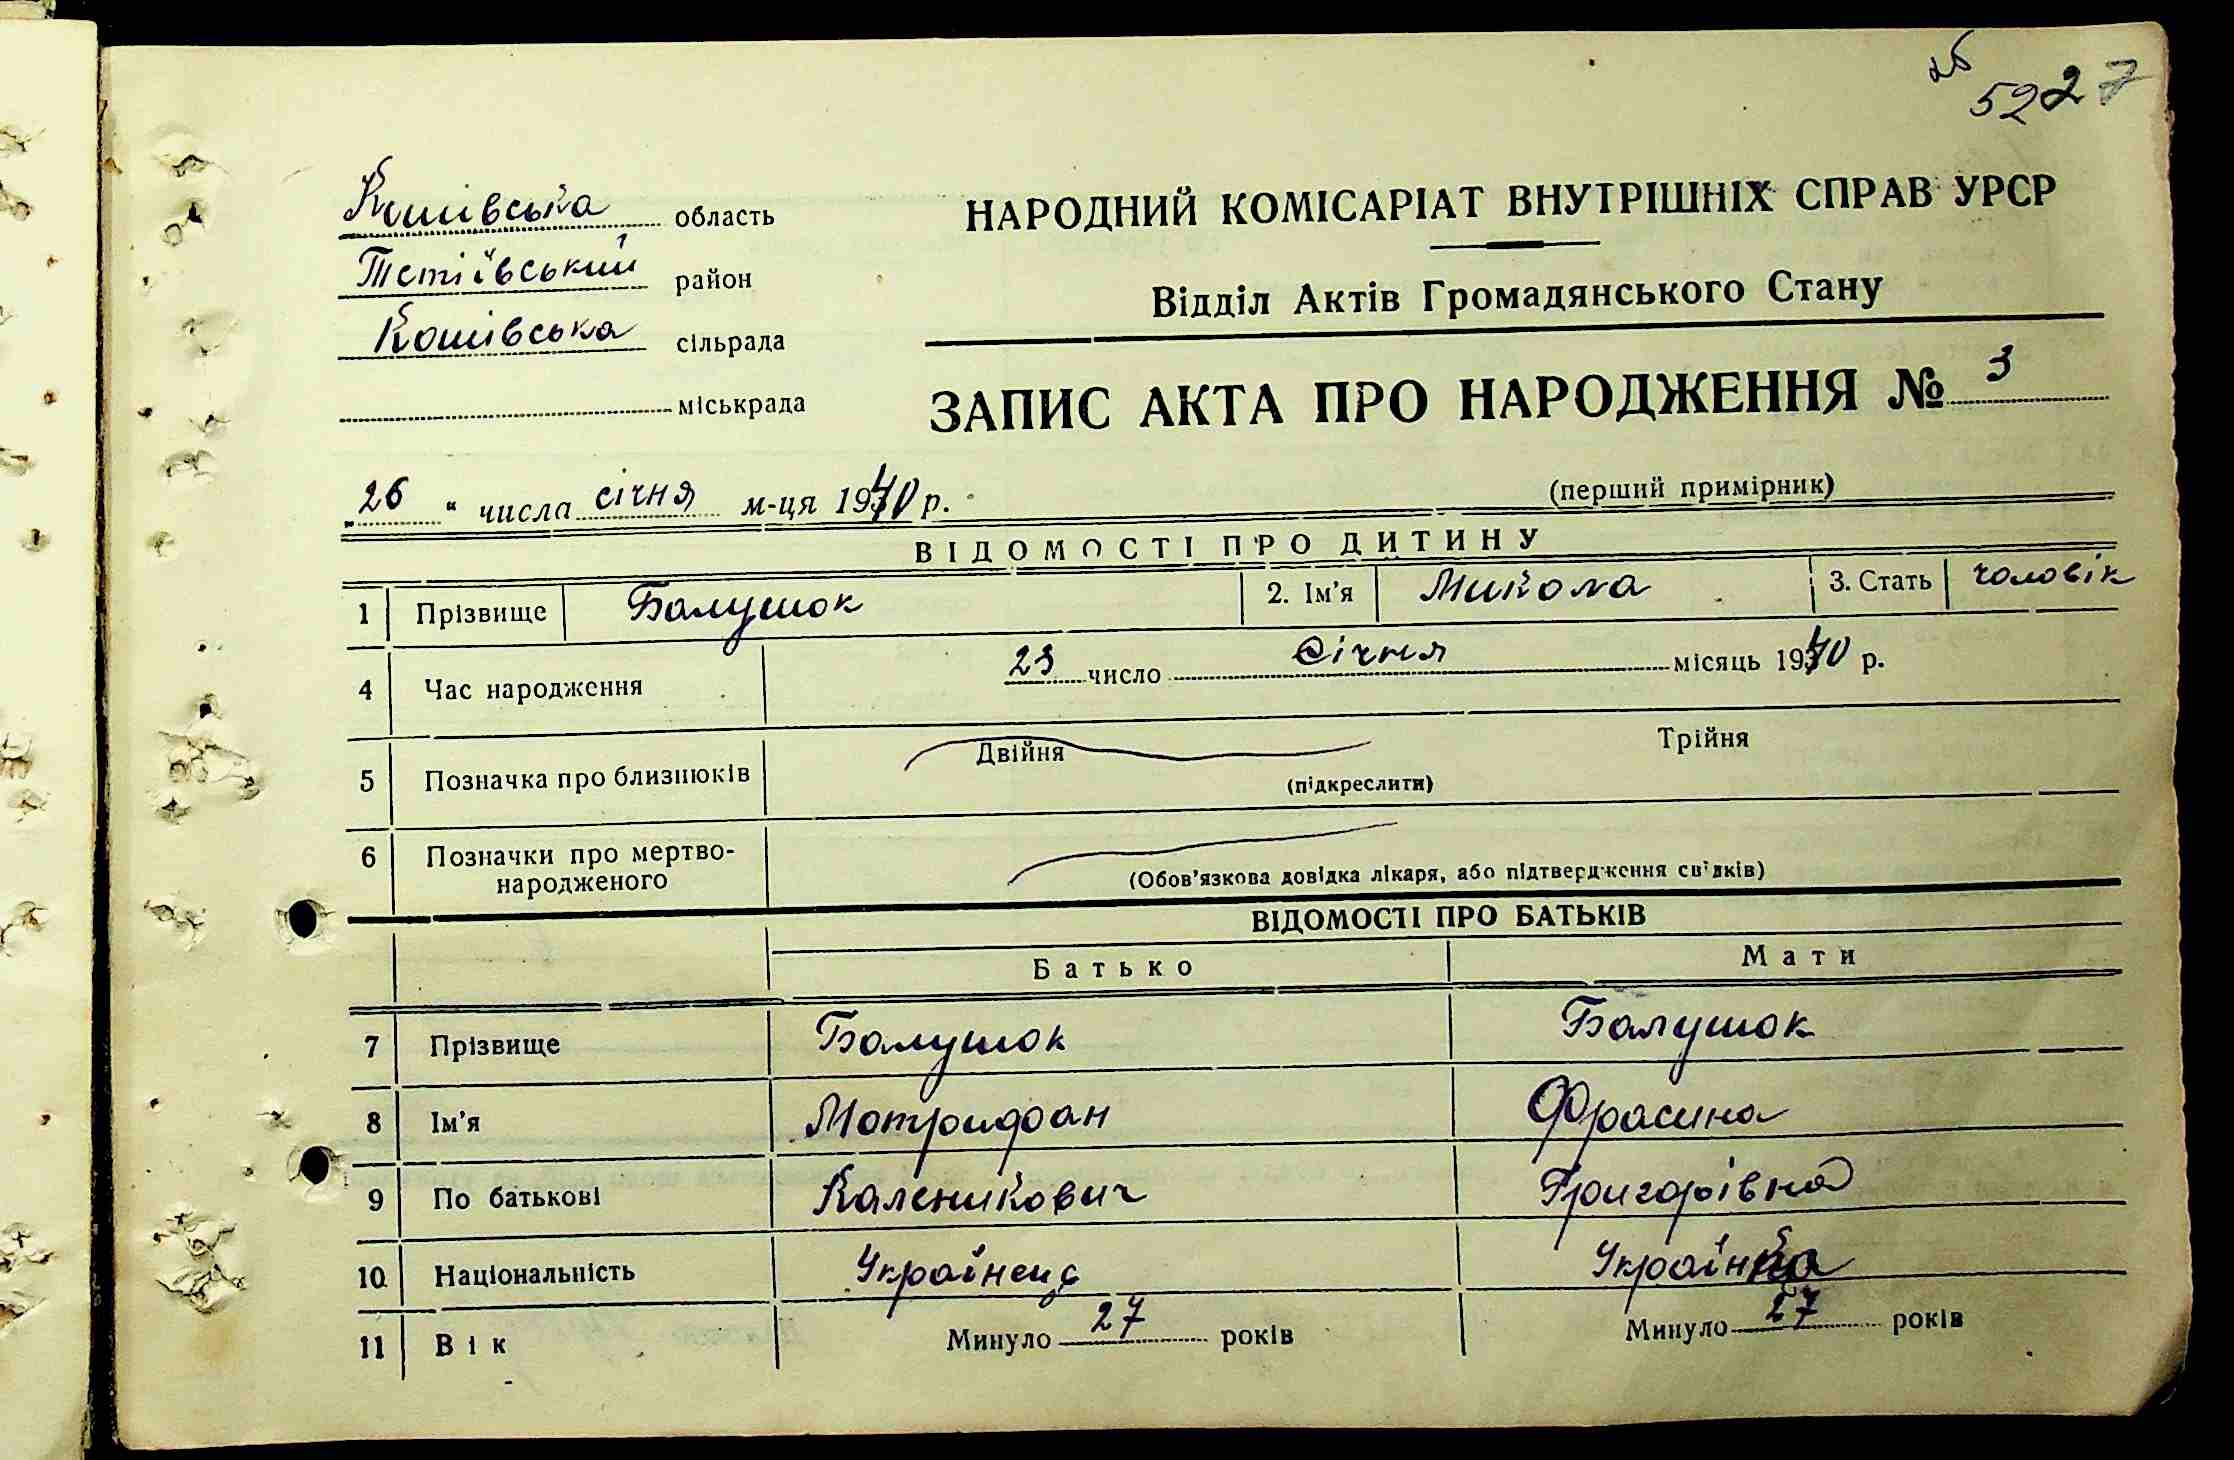 5227
Кошівська область
Тетіївський район
Кошівська сільрада
міськрада
НАРОДНИЙ КОМІСАРІАТ ВНУТРІШНІХ СПРАВ УРСР
Відділ Актів Громадянського Стану
ЗАПИС АКТА ПРО НАРОДЖЕННЯ № 3
„26“ числа січня м-ця 1940 р.
(перший примірник)
ВІДОМОСТІ ПРО ДИТИНУ
1 Прізвище Балушок 2. Ім'я Микола 3. Стать чоловік
4 Час народження 23 число Січня місяць 1940 р.
5 Позначка про близнюків Двійня Трійня
(підкреслити)
6 Позначки про мертво-
народженого
(Обов'язкова довідка лікаря, або підтвердження свідків)
ВІДОМОСТІ ПРО БАТЬКІВ
Батько Мати
7 Прізвище Балушок Балушок
8 Ім'я Митрофан Фрасина
9 По батькові Каленикович Григорівна
10 Національність Українець Українка
11 Вік Минуло 27 років Минуло 27 років